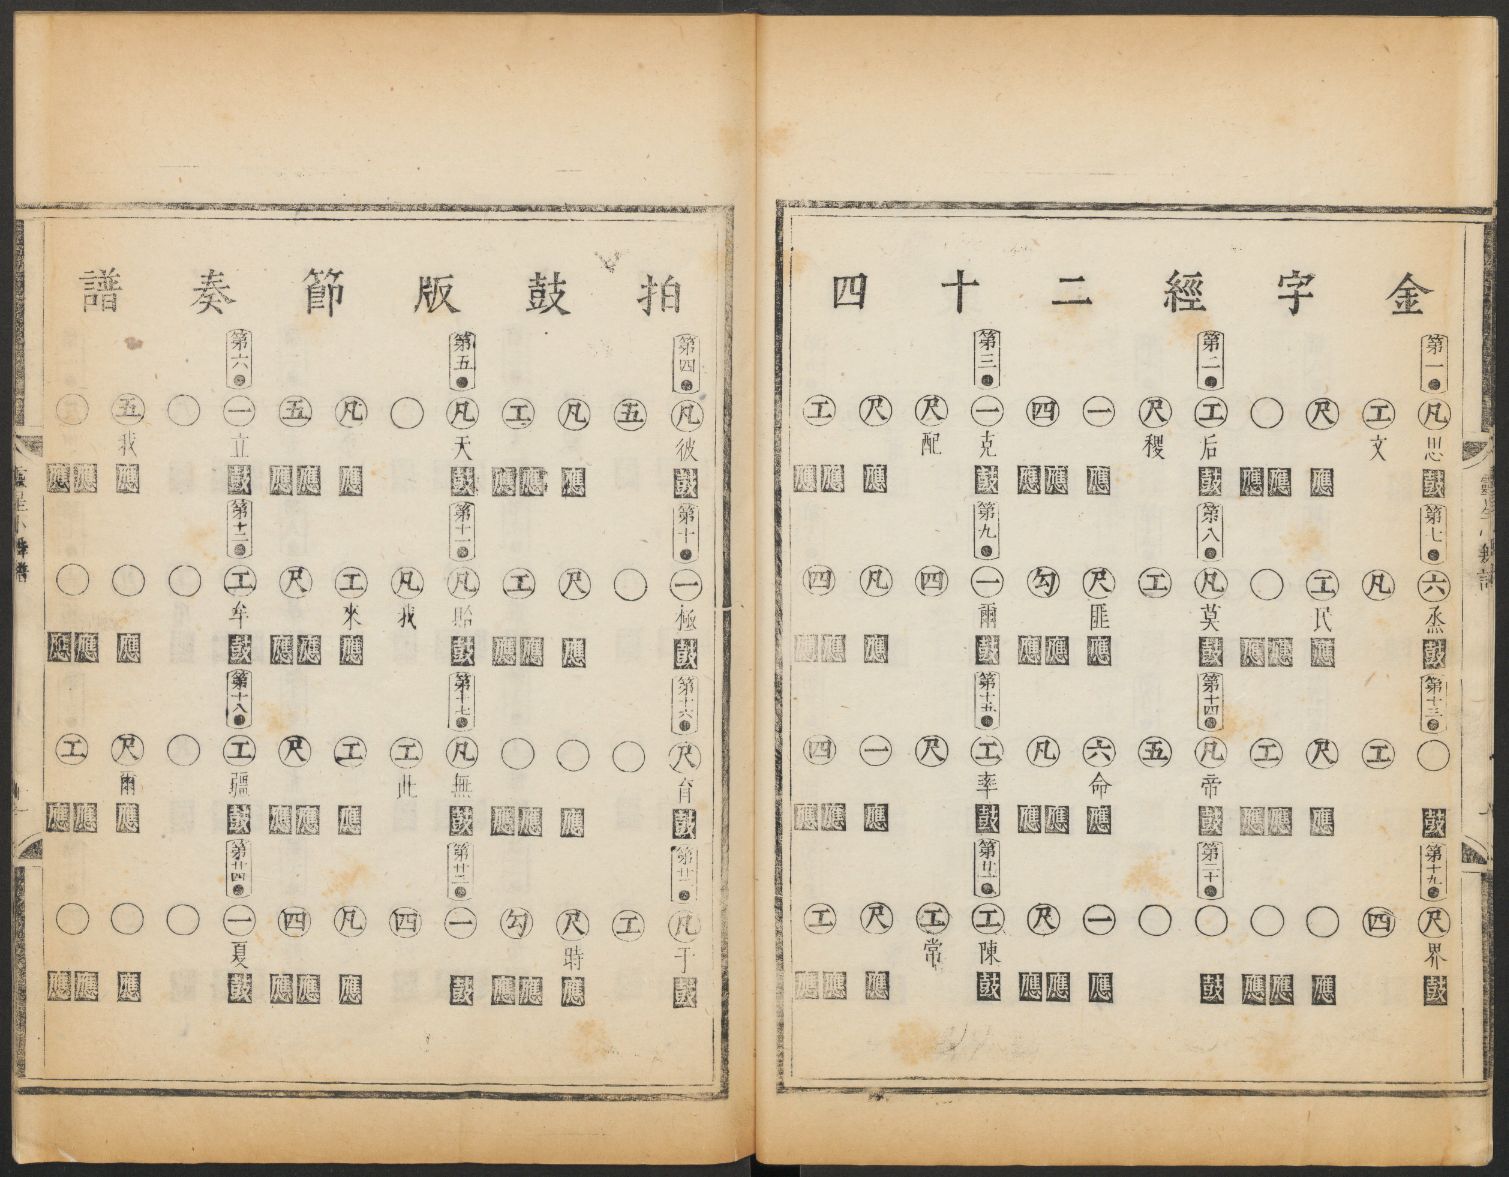 金字經二十四拍鼓版節奏譜
第一 凡思鼓 工文 尺應 ○應應
第二 工后鼓 尺稷 一應 四應應
第三 一克鼓 尺配 尺應 工應應
第四 凡彼鼓 五 凡應 工應應
第五 凡天鼓 ○ 凡應 五應應
第六 一立鼓 ○ 五我應 ○應應
第七 六烝鼓 凡 工民應 ○應應
第八 凡莫鼓 工 尺匪應 勾應應
第九 一爾鼓 四 凡應 四應應
第十 一極鼓 ○ 尺應 工應應
第十一 凡貽鼓 凡我 工來應 尺應應
第十二 工牟鼓 ○ ○應 ○應應
第十三 ○鼓 工 尺應 工應應
第十四 凡帝鼓 五 六命應 凡應應
第十五 工率鼓 尺 一應 四應應
第十六 尺育鼓 ○ ○應 ○應應
第十七 凡無鼓 工此 工應 尺應應
第十八 工疆鼓 ○ 尺爾應 工應應
第十九 尺界鼓 四 ○應 ○應應
第二十 ○鼓 ○ 一應 尺應應
第廿一 工陳鼓 工常 尺應 工應應
第廿二 凡于鼓 工 尺時應 勾應應
第廿三 一鼓 四 凡應 四應應
第廿四 一夏鼓 ○ ○應 ○應應
靈星小舞譜